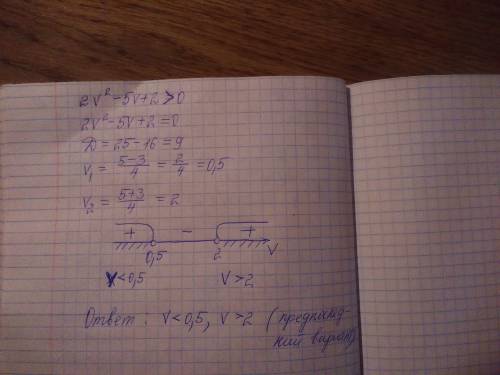 2v² - 5v + 2 > 0
2v² - 5v + 2 = 0
D = 25 - 16 = 9
v₁ = (5-3)/4 = 2/4 = 0,5
v₂ = (5+3)/4 = 2
+ - +
0,5 2 v
v < 0,5 v > 2
Ответ: v < 0,5, v > 2 (предпослед-
ний вариант)